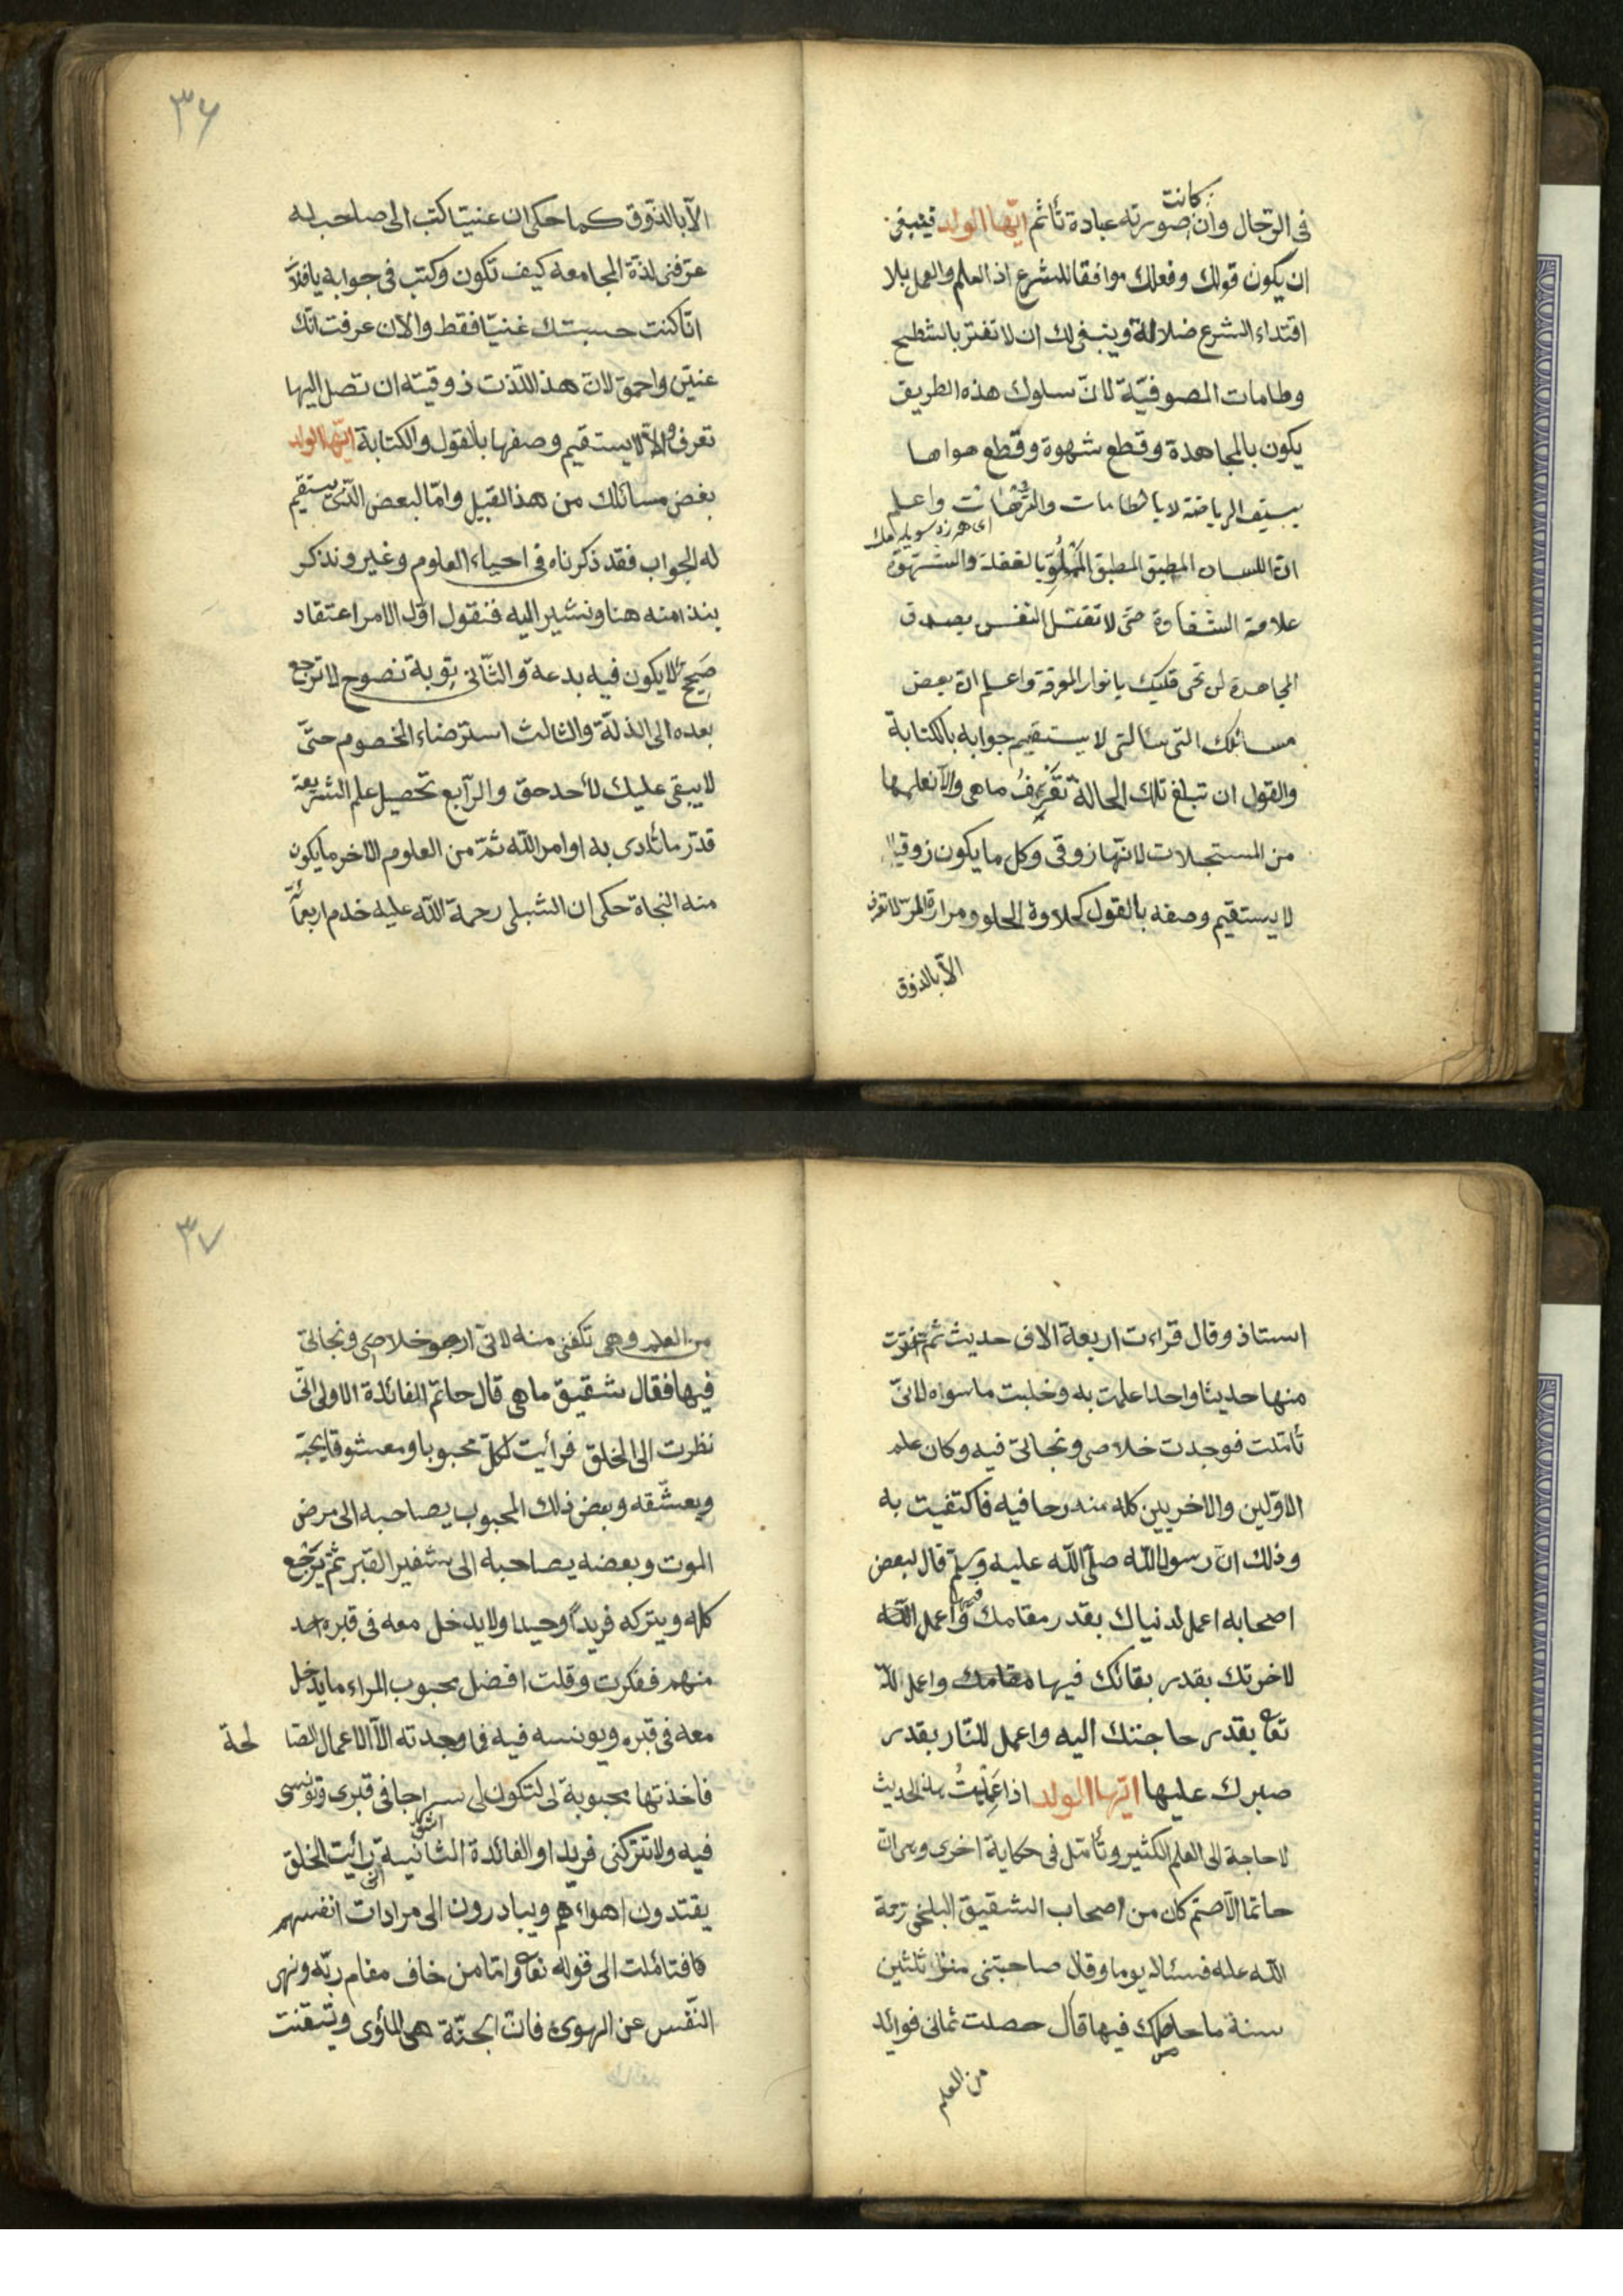 كانت
فى الرّجال وان صورته عبادة تأثم ايّها الولد فينبغى
ان يكون قولك وفعلك موافقا للشرع اذ العلم والعمل بلا
اقتداء الشرع ضلالة وينبغى لك ان لا تغتر بالشطح
وطامات الصوفيّة لانّ سلوك هذه الطريق
يكون بالمجاهدة وقطع شهوة وقطع هواها
بسيف الرياضة لا بالطامات والترّهات واعلم
اى هرزه سويلمك
انّ اللسان المطبق المطبق المملوّ بالغفلة والشهوة
علامة الشقاوة حتى لا تقتل النفس بصدق
المجاهدة لن تحى قلبك بانوار المعرفة واعلم انّ بعض
مسائلك التى سألتى لا يستقيم جوابه بالكتابة
والقول ان تبلغ تلك الحالة تعرف ماهى والّا نعلمها
من المستحلات لانّها زوقى وكل ما يكون زوقيا
لا يستقيم وصفه بالقول كحلاوة الحلو ومرارة المرّ لا تعرف
الّا بالذوق
٣٦
الّا بالذّوق كما حكى ان عنينا كتب الى صاحب له
عرّفنى لذّة المجامعه كيف تكون وكتب فى جوابه يا فلان
انّا كنت حسبتك عنينا فقط والآن عرفت انّك
عنيّن واحمق لانّ هذ اللّذت ذوقيته ان تصل اليها
تعرف والّا لا يستقيم وصفها بالقول والكتابة ايّها الولد
بغض مسائلك من هذ القبيل وامّا لبعض الذّى يستقيم
له الجواب فقد ذكرناه فى احياء العلوم وغير ونذكر
بنذا منه هنا ونشير اليه فنقول اوّل الامر اعتقاد
صحيح لا يكون فيه بدعة والثّانى توبة نصوح لا ترجع
بعده الى الذلّة والثالث استرضاء الخصوم حتّى
لا يبقى عليك لأحد حق والرّابع تحصيل علم الشريعة
قدر ما تأدى به اوامر اللّه ثمّ من العلوم الاخر ما يكون
منه النجاة حكى ان الشبلى رحمة اللّه عليه خدم اربعمأئة
استاذ وقال قراءت اربعة الاف حديث ثم اخترت
منها حديثا واحدا علمت به وخليت ما سواه لانىّ
تأمّلت فوجدت خلاصى ونجاتى فيه وكان علم
الاوّلين والاخريين كله مندرجا فيه فاكتفيت به
وذلك انّ رسول اللّه صلّى اللّه عليه وسلم قال لبعض
فيها
اصحابه اعمل لدنياك بقدر مقامك واعمل اللّه
لاخرتك بقدر بقائك فيها مقامك واعمل للّه
تعا بقدر حاجتك اليه واعمل للنّار بقدر
صبرك عليها ايّها الولد اذا عملت بهذ الحديث
لا حاجة الى العلم الكثير وتأمّل فى حكاية اخرى وهى انّ
حاتما الاصمّ كان من اصحاب الشقيق البلخى رحمة
اللّه عليه فسئاله يوما وقال صاحبتنى منذ ثلثين
سنة ما حاصلك فيها قال حصلت ثمانى فوائد
من العلم
٣٧
من العلم وهى تكفنى منه لانّى ارجو خلاصى ونجاتى
فيها فقال شقيق ماهى قال حاتم الفائدة الاولى انّى
نظرت الى الخلق فرأيت لكلّ محبوبا ومعشوقا يحبّه
ويعشّقه وبعض ذلك المحبوب يصاحبه الى مرض
الموت وبعضه يصاحبه الى شفير القبر ثمّ يرجع
كله ويتركه فريدا وحيدا ولا يدخل معه فى قبره احد
منهم ففكرت وقلت افضل محبوب المراء ما يدخل
معه فى قبره ويونسه فيه فما وجدته الّا الاعمال الصّا لحة
فاخذتها محبوبة لى لتكون لى سراجا فى قبرى وتونسى
فيه ولا تتركنى فريدا والفائدة الثانية انّى رأيت الخلق
يقتدون اهواءهم ويبادرون الى مرادات انفسهم
فتائملت الى قوله تعا وامّا من خاف مقام ربّه ونهى
النّفس عن الهوى فانّ الجنّة هى المأوى وتيقنت